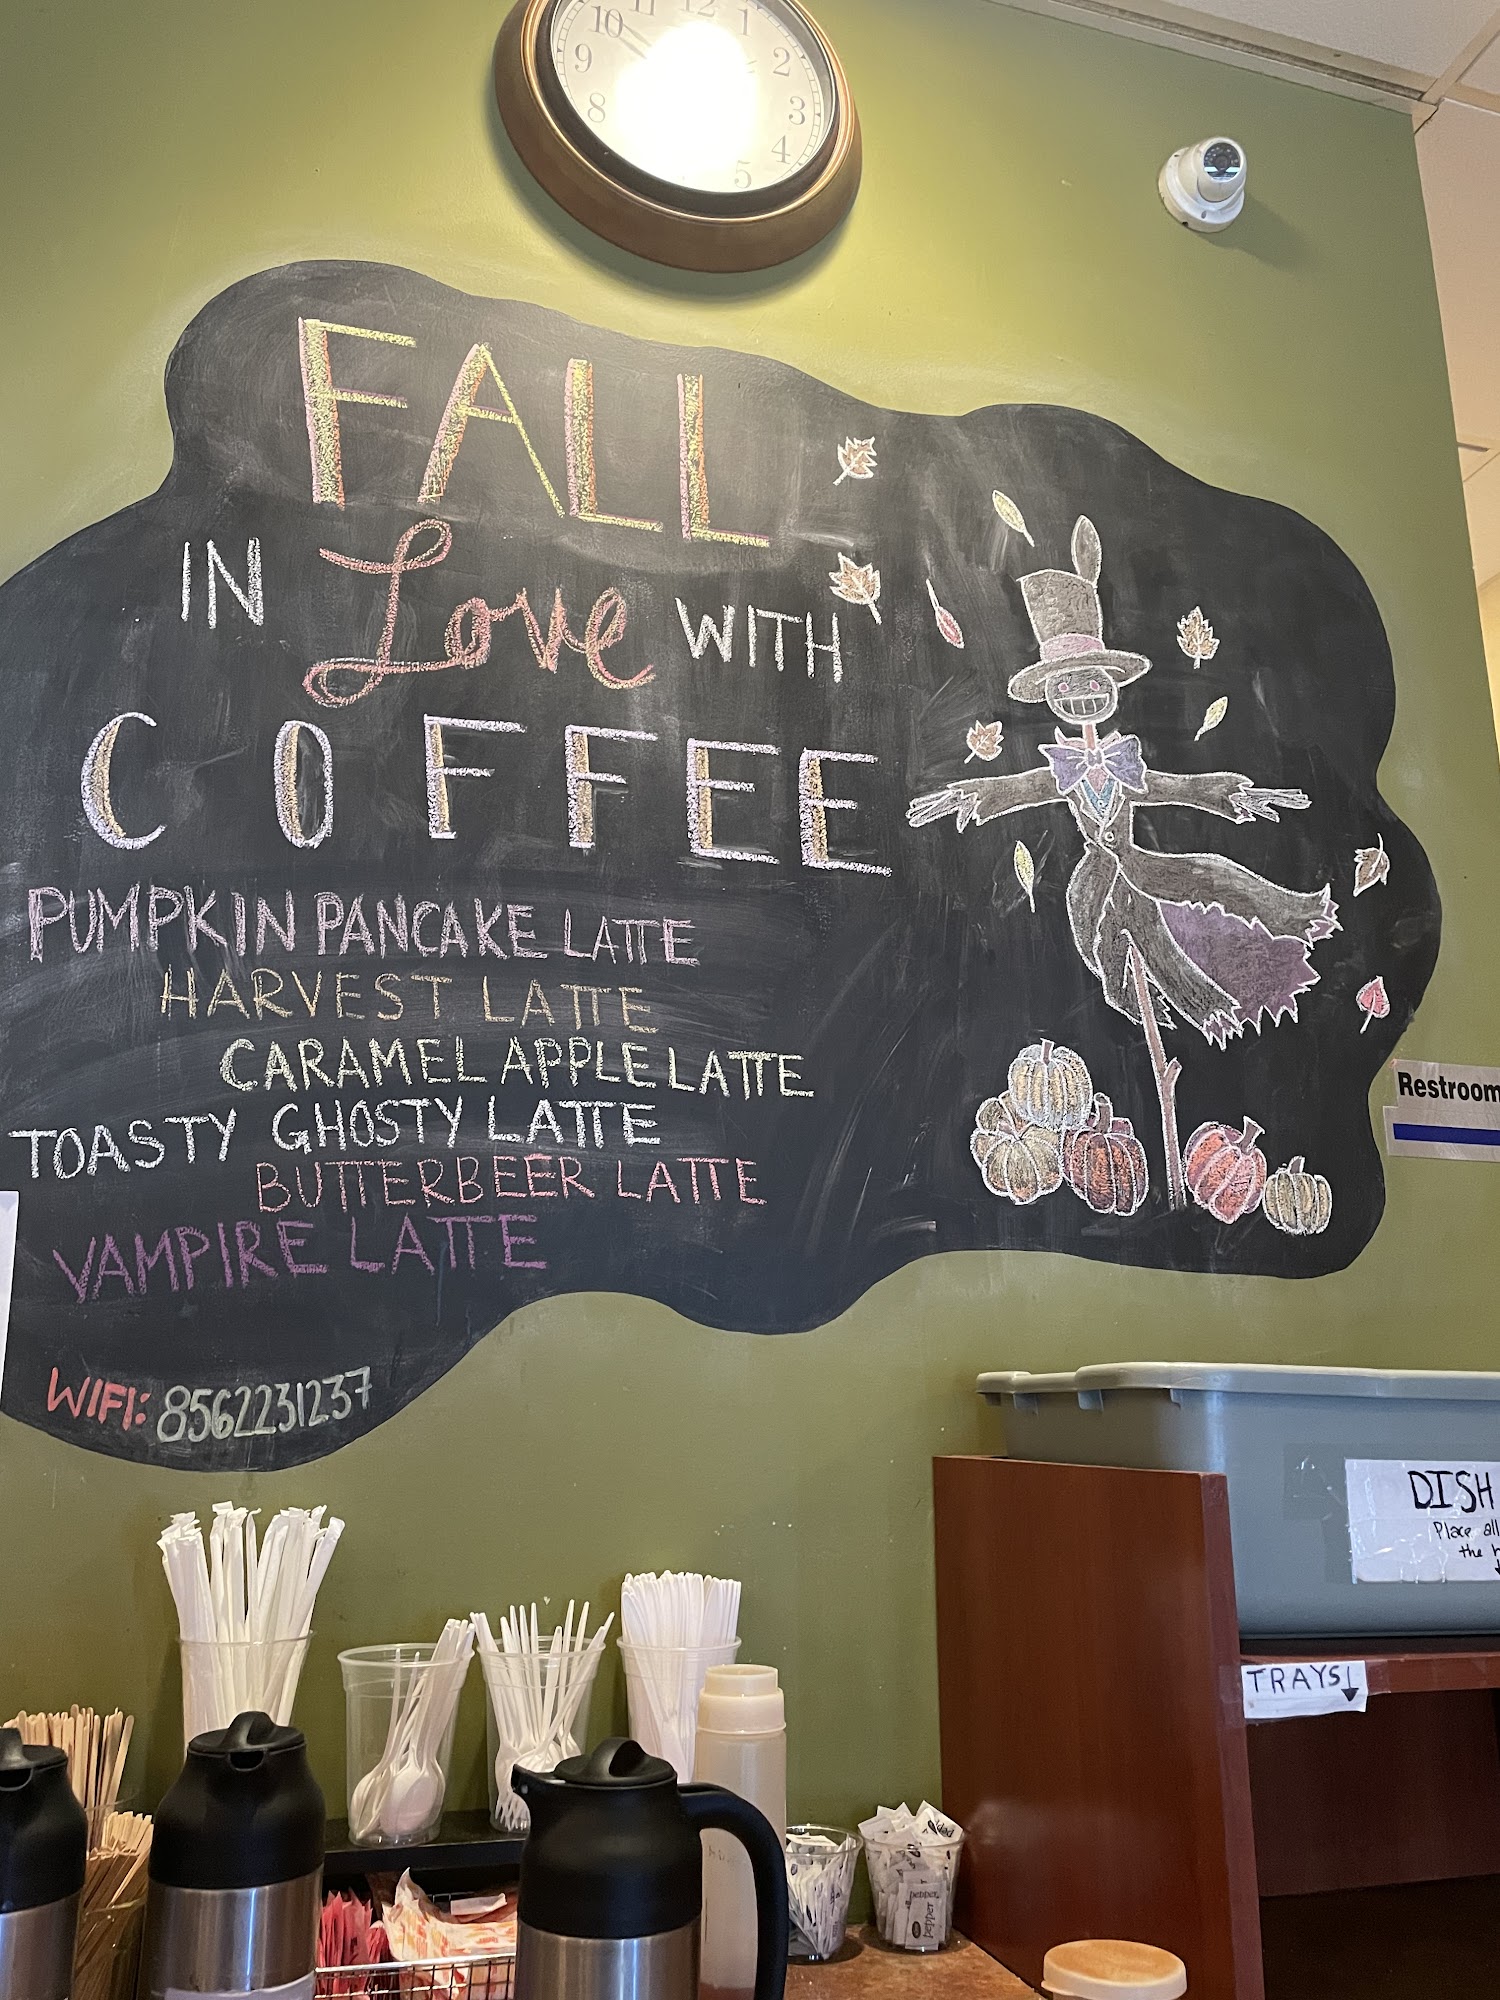 10 11 12 1
9 2
8 3
4
5
FALL
IN Love WITH
COFFEE
PUMPKIN PANCAKE LATTE
HARVEST LATTE
CARAMEL APPLE LATTE
TOASTY GHOSTY LATTE
BUTTERBEER LATTE
VAMPIRE LATTE
WIFI: 8562231237
Restroom
DISH
Place all
the
TRAYS
pepper
pepper